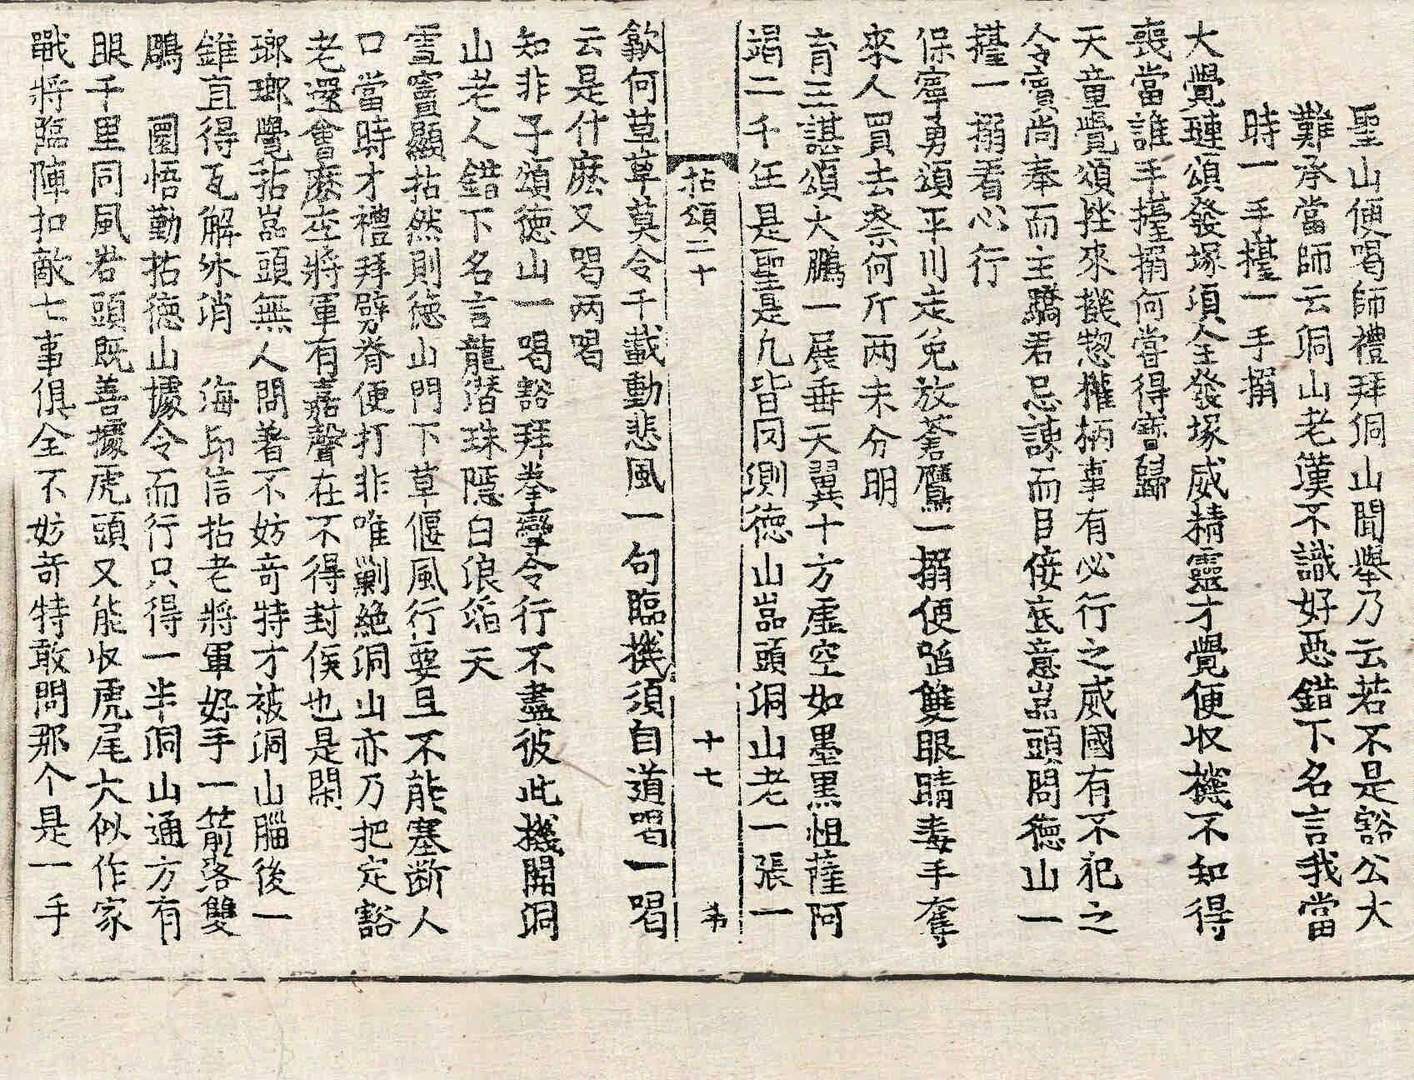 聖山便喝師禮拜洞山聞擧乃云若不是豁公大
難承當師云洞山老漢不識好惡錯下名言我當
時一手擡一手搦
大覺璉頌發塚須全發塚威精靈才覺便收機不知得
喪當誰手擡搦何曾得寶歸
天童覺頌挫來機惣權柄事有必行之威國有不犯之
令賓尚奉而主驕君忌諫而臣佞底意嵓頭問德山一
擡一搦看心行
保寧勇頌平川走兔放蒼鷹一搦便啗雙眼睛毒手奪
來人買去柰何斤两未分明
育王諶頌大鵬一展垂天翼十方虛空如墨黒怛薩阿
竭二千年是聖是凡皆罔測德山嵓頭洞山老一張一
拈頌二十
十七
弗
歙何草草莫令千載動悲風一句臨機須自道喝一喝
云是什麽又喝两喝
知非子頌德山一喝豁拜拳攣令行不盡彼此機開洞
山老人錯下名言龍潛珠隱白浪滔天
雪竇顯拈然則德山門下草偃風行要且不能塞斷人
口當時才禮拜劈脊便打非唯剿絶洞山亦乃把定豁
老還會麽李將軍有嘉聲在不得封侯也是閑
瑯瑘覺拈嵓頭無人問著不妨竒特才被洞山腦後一
錐直得瓦解氷消　海印信拈老將軍好手一箭落雙
鵰　圜悟勤拈德山據令而行只得一半洞山通方有
眼千里同風若頭既善據虎頭又能收虎尾大似作家
戰將臨陣扣敵七事俱全不妨竒特敢問那个是一手